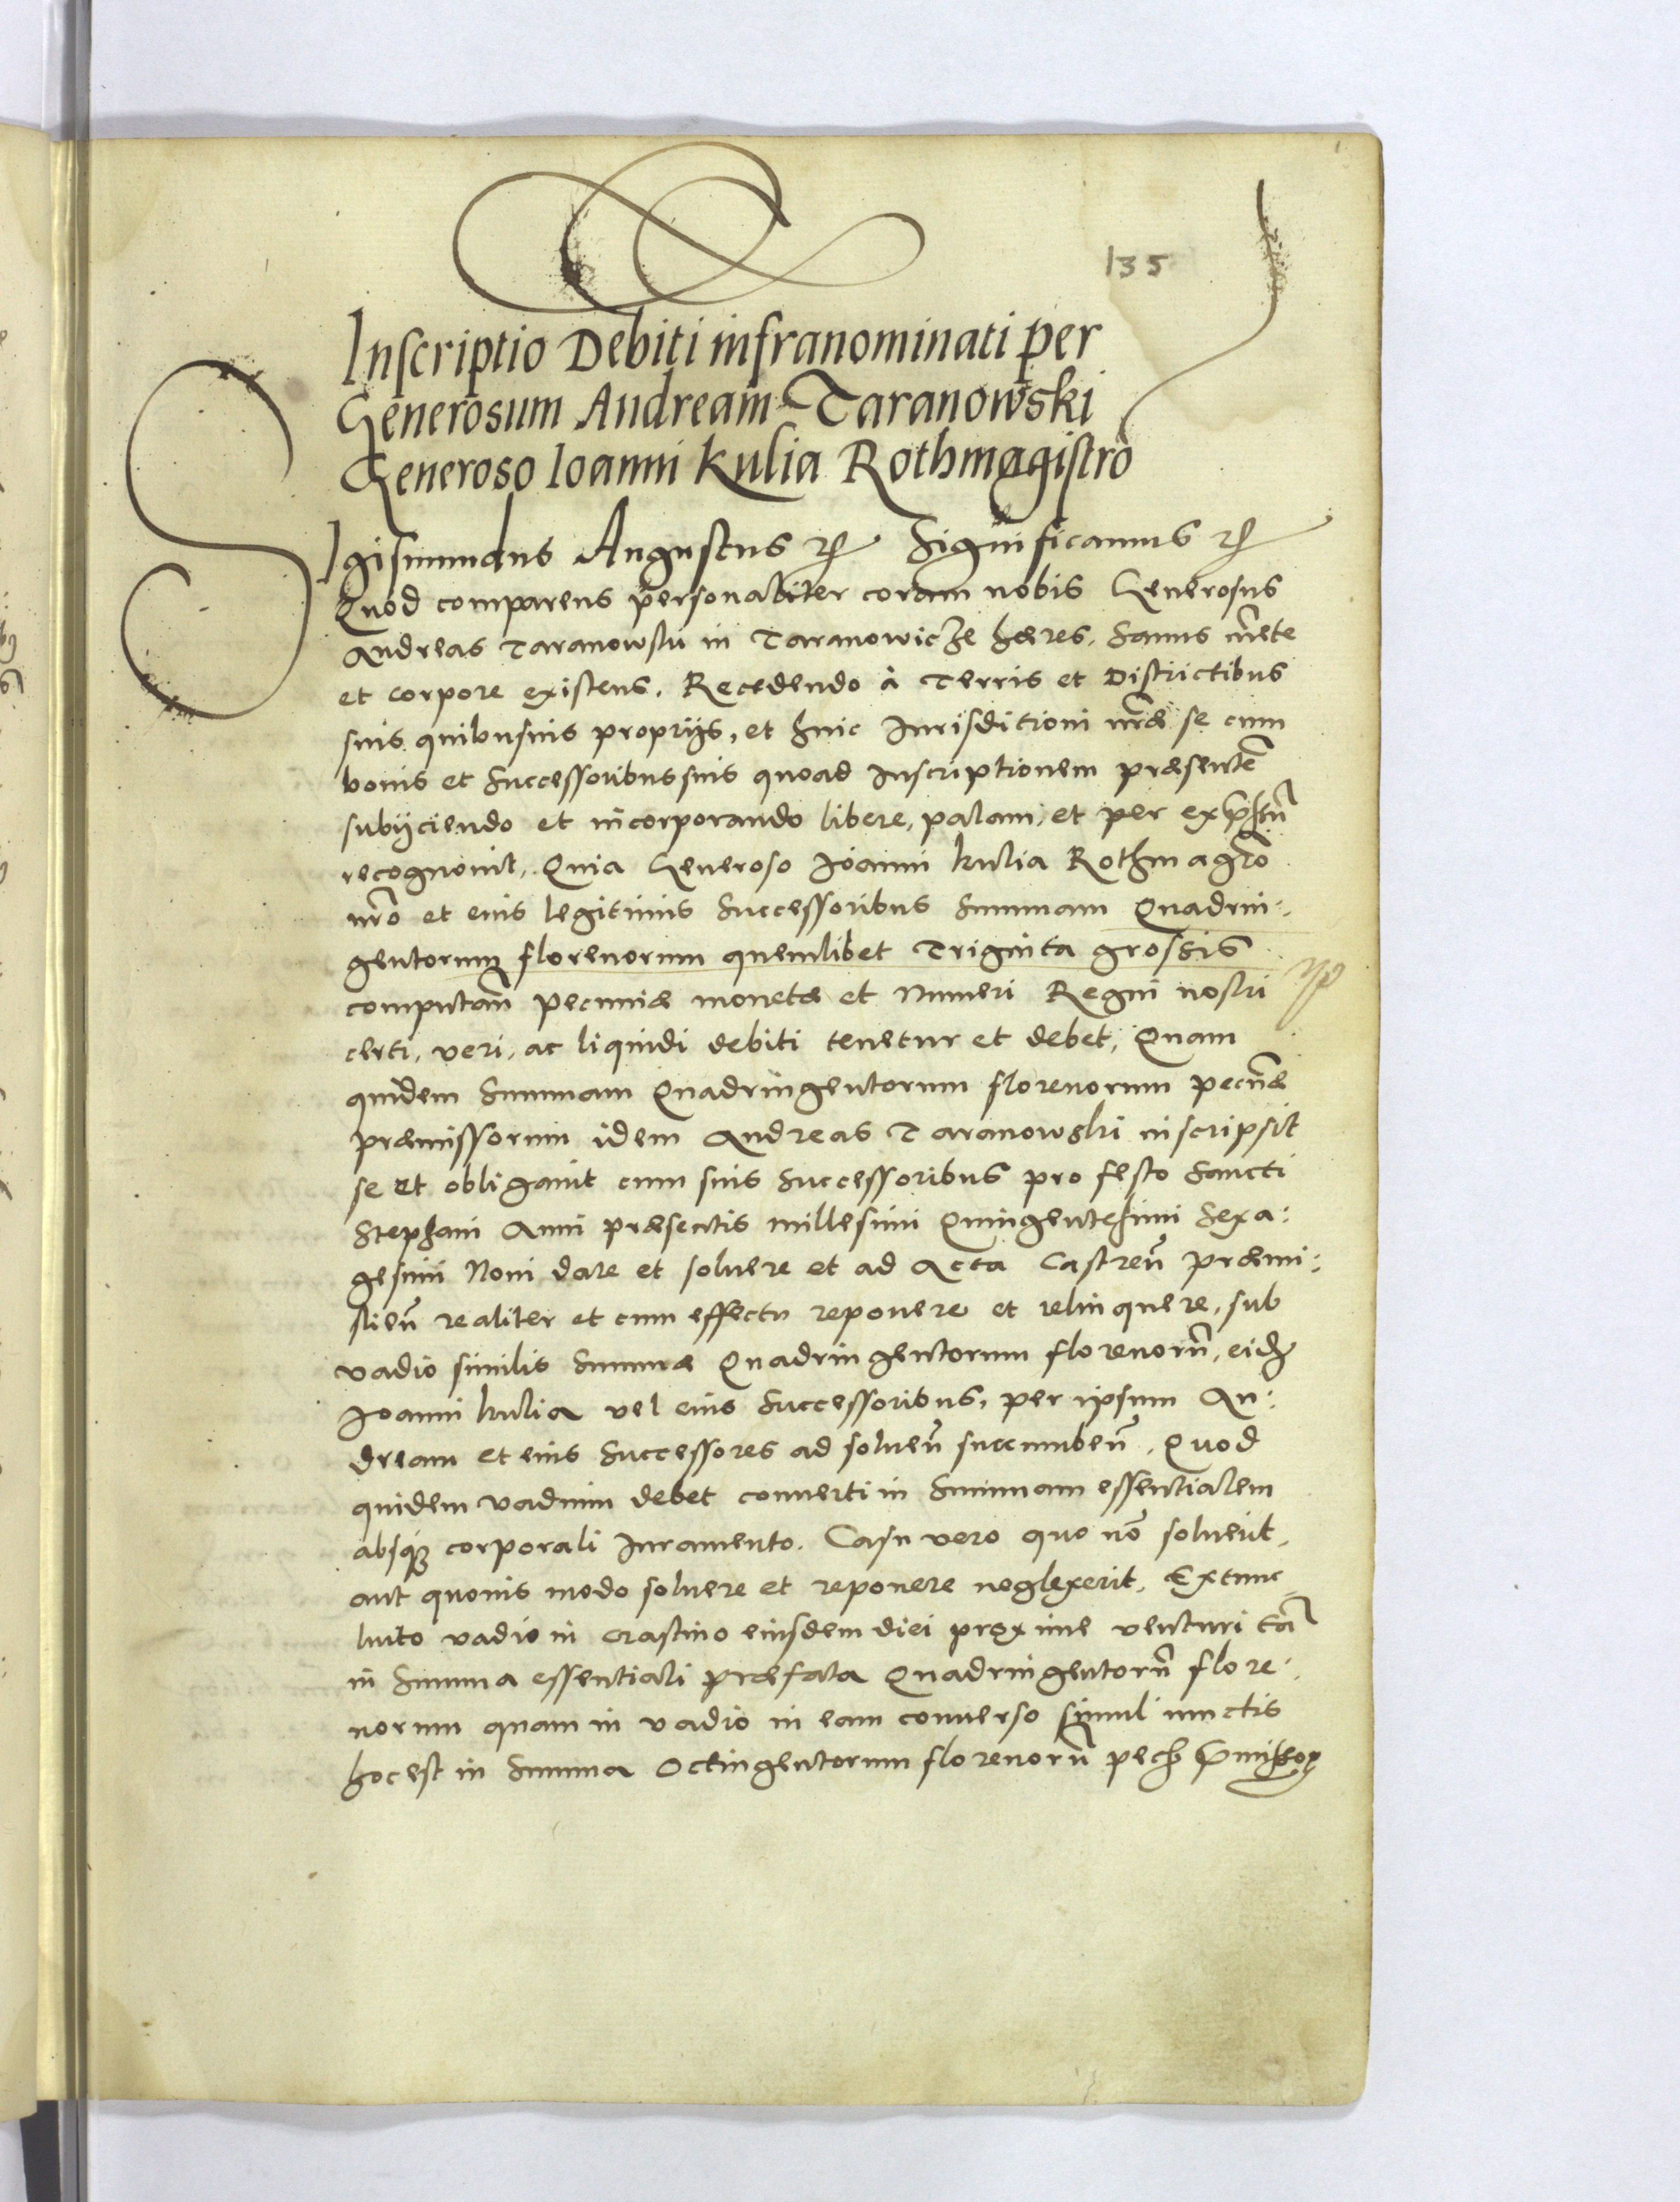 135
Inscriptio Debiti infranominati per
Generosum Andream Taranowski
Generoso Ioanni Kulia Rothmagistro
Sigismundus Augustus etc Significamus etc
Quod comparens personaliter coram nobis Generosus
Andreas Taranowski in Taranowicze hæres, sanus mẽte
et corpore existens, Recedendo à Terris et Districtibus
suis quibusuis proprijs, et huic Iurisditioni nr̃æ se cum
bonis et Successoribus suis quoad Inscriptionem præsentẽ
subijciendo et incorporando libere, palam, et per exp̃ssũ
recognouit, Quia Generoso Ioanni Kulia Rothmagr̃o
nr̃o et eius legitimis Successoribus Summam Quadrin:
gentorum florenorum quemlibet Triginta grossis
computañ pecuniæ monetæ et Numeri Regni nostri
certi, veri, ac liquidi debiti tenetur et debet, Quam
quidem Summam Quadringentorum florenorum pecñæ
præmissorum idem Andreas Taranowski inscripsit
se et obligauit cum suis Successoribus pro festo Sancti
Stephani Anni præsentis millesimi Quingentesimi Sexa:
gesimi Noni dare et soluere et ad Acta Castreñ Præmi:
slieñ realiter et cum effectu reponere et relinquere, sub
vadio similis Summæ Quadringentorum florenorũ, eidẽ
Ioanni Kulia vel eius Successoribus, per ipsum An:
dream et eius Successores ad solueñ succumbeñ, Quod
quidem vadium debet conuerti in Summam essentialem
absq; corporali Iuramento. Casu vero quo nõ soluerit,
aut quouis modo soluere et reponere neglexerit, Extunc
luito vadio in crastino eiusdem diei proxime venturi tã
in Summa essentiali præfata Quadringentorũ flore:
norum quam in vadio in eam conuerso simul iunctis
hoc est in Summa Octingentorum florenorũ